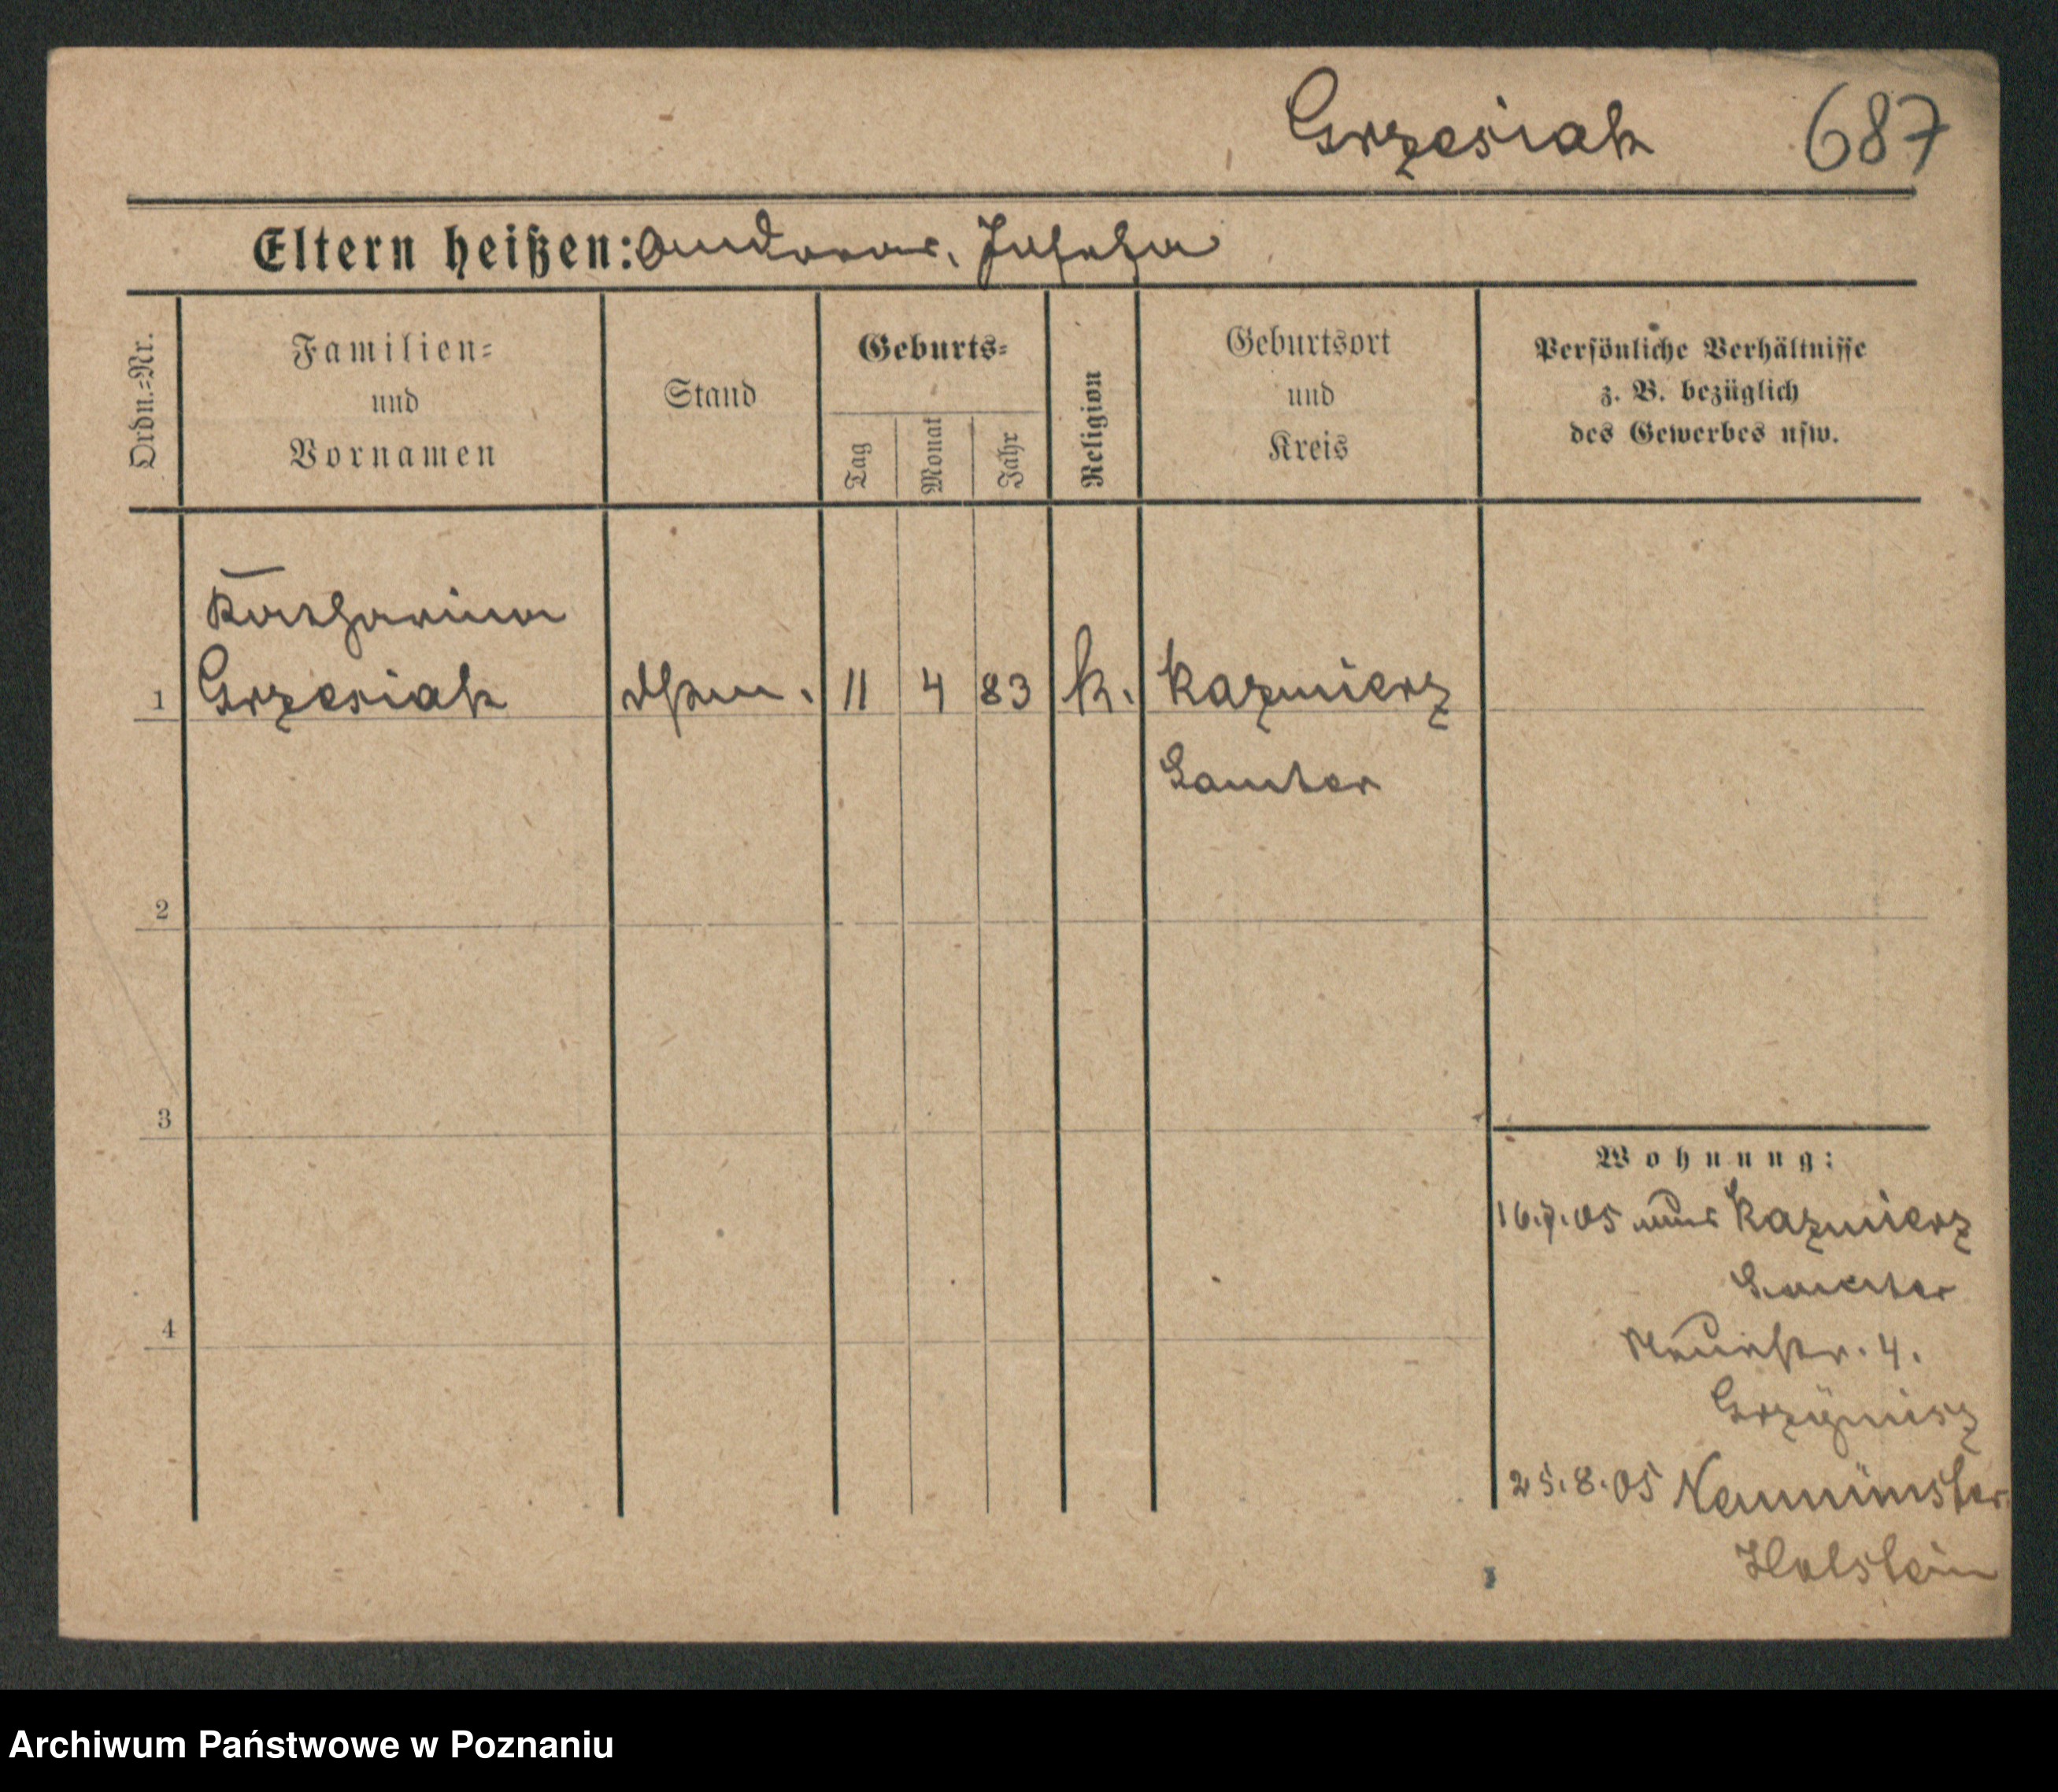 Grzesiak 687
Eltern heißen: Andreas, Josefa
Ordn.=Nr.
Familien=
und
Vornamen
Stand
Geburts=
Tag
Monat
Jahr
Religion
Geburtsort
und
Kreis
Persönliche Verhältnisse
z. B. bezüglich
des Gewerbes usw.
Katharina
1 Grzesiak 11 4 83 k. Kazmierz
Samter
2
3
4
Wohnung:
16.7.05 aus Kazmierz
Samter
Neuestr. 4.
25.8.05 Neumünster
Holstein
Archiwum Państwowe w Poznaniu